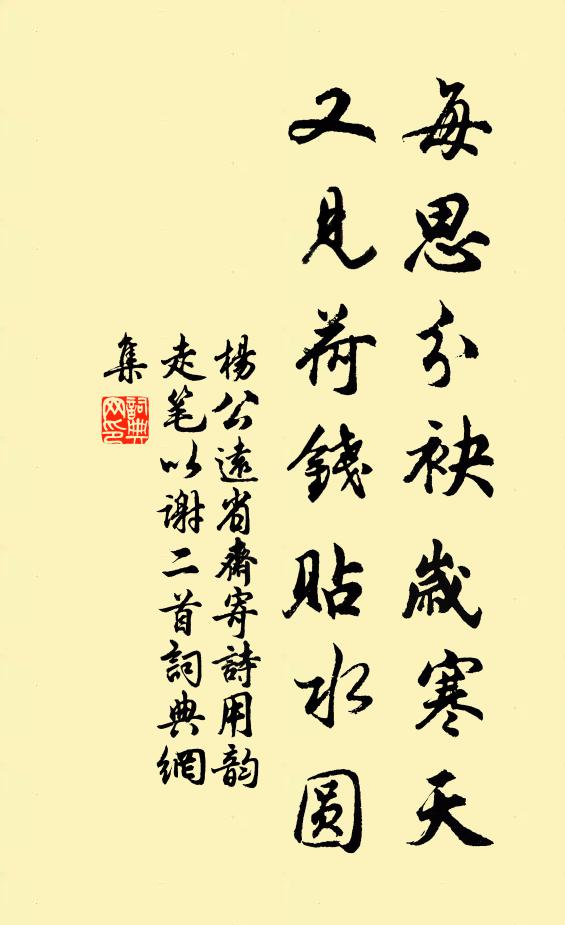 每思分袂歲寒天
又見荷錢貼水圓
楊公遠省齋寄詩用韵
走笔以谢二首詞典網
集
詞典网印